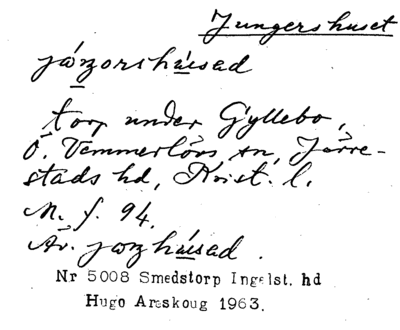 Jungershuset
torp under Gyllebo,
Ö. Vemmerlövs sn, Järre-
stads hd, Krist. l.
M. f. 94.
Äv.
Nr 5008 Smedstorp Ingelst. hd
Hugo Areskoug 1963.